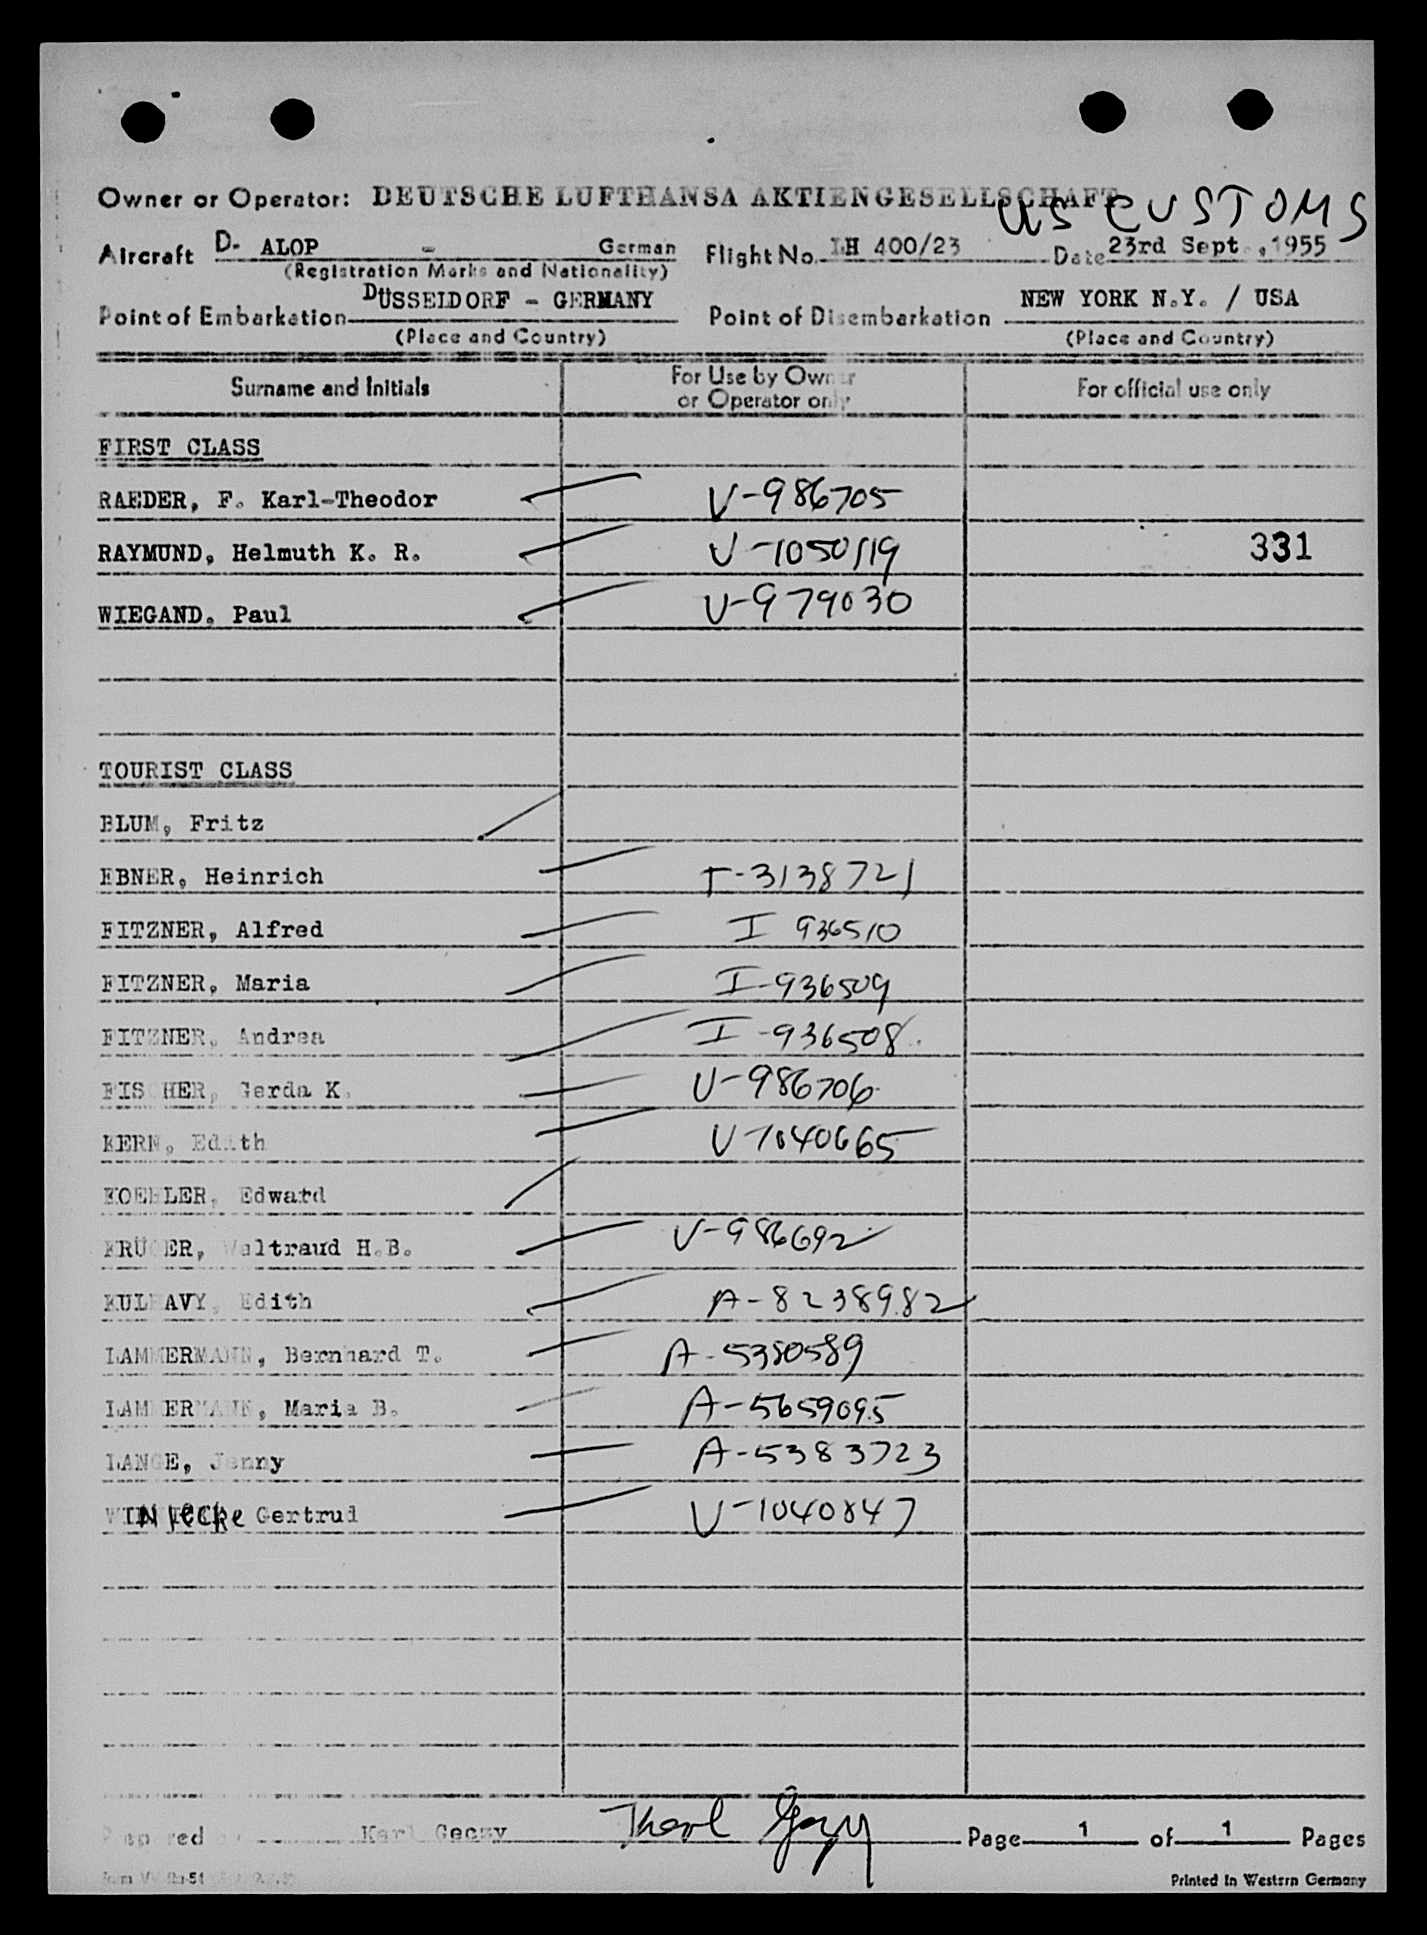 Owner or Operator: DEUTSCHE LUFTHANSA AKTIENGESELLSCHAFT
US CUSTOMS
Aircraft D- ALOP - German Flight No. LH 400/23 Date 23rd Sept., 1955
(Registration Marks and Nationality)
Point of Embarkation DÜSSELDORF - GERMANY Point of Disembarkation NEW YORK N.Y. / USA
(Place and Country) (Place and Country)
Surname and Initials For Use by Owner or Operator only For official use only
FIRST CLASS
RAEDER, F. Karl-Theodor V-986705
RAYMUND, Helmuth K. R. V-1050119 331
WIEGAND. Paul V-979030
TOURIST CLASS
BLUM, Fritz
EBNER, Heinrich T-3138721
FITZNER, Alfred I 936510
FITZNER, Maria I-936509
FITZNER, Andrea I-936508
FISCHER, Gerda K. V-986706
KERN, Edith V-1040665
KOEHLER, Edward
KRÜGER, Waltraud H.B. V-986692
KULHAVY, Edith A-8238982
LAMMERMANN, Bernhard T. A-5380589
LAMMERMANN, Maria B. A-5659095
LANGE, Jenny A-5383723
Gertrud V-1040847
Prepared by Karl Geczy Karl Geczy Page 1 of 1 Pages
Printed in Western Germany